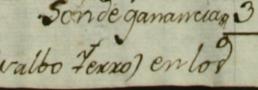 Son de ganancias 3
(salbo Yerro) en los